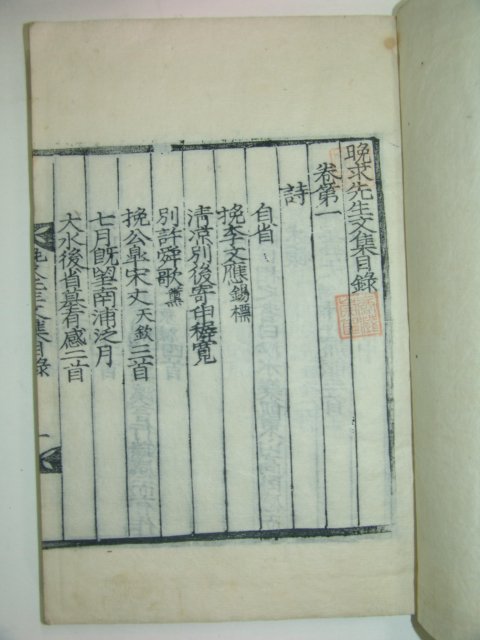 晩求先生文集目錄
卷第一
詩
自省
挽李文應錫標
淸凉別後寄申穉寬
別許舜歌薰
挽公臯宋丈天欽三首
七月旣望南浦泛月
大水後省墓有感二首
晩求先生文集目錄 一